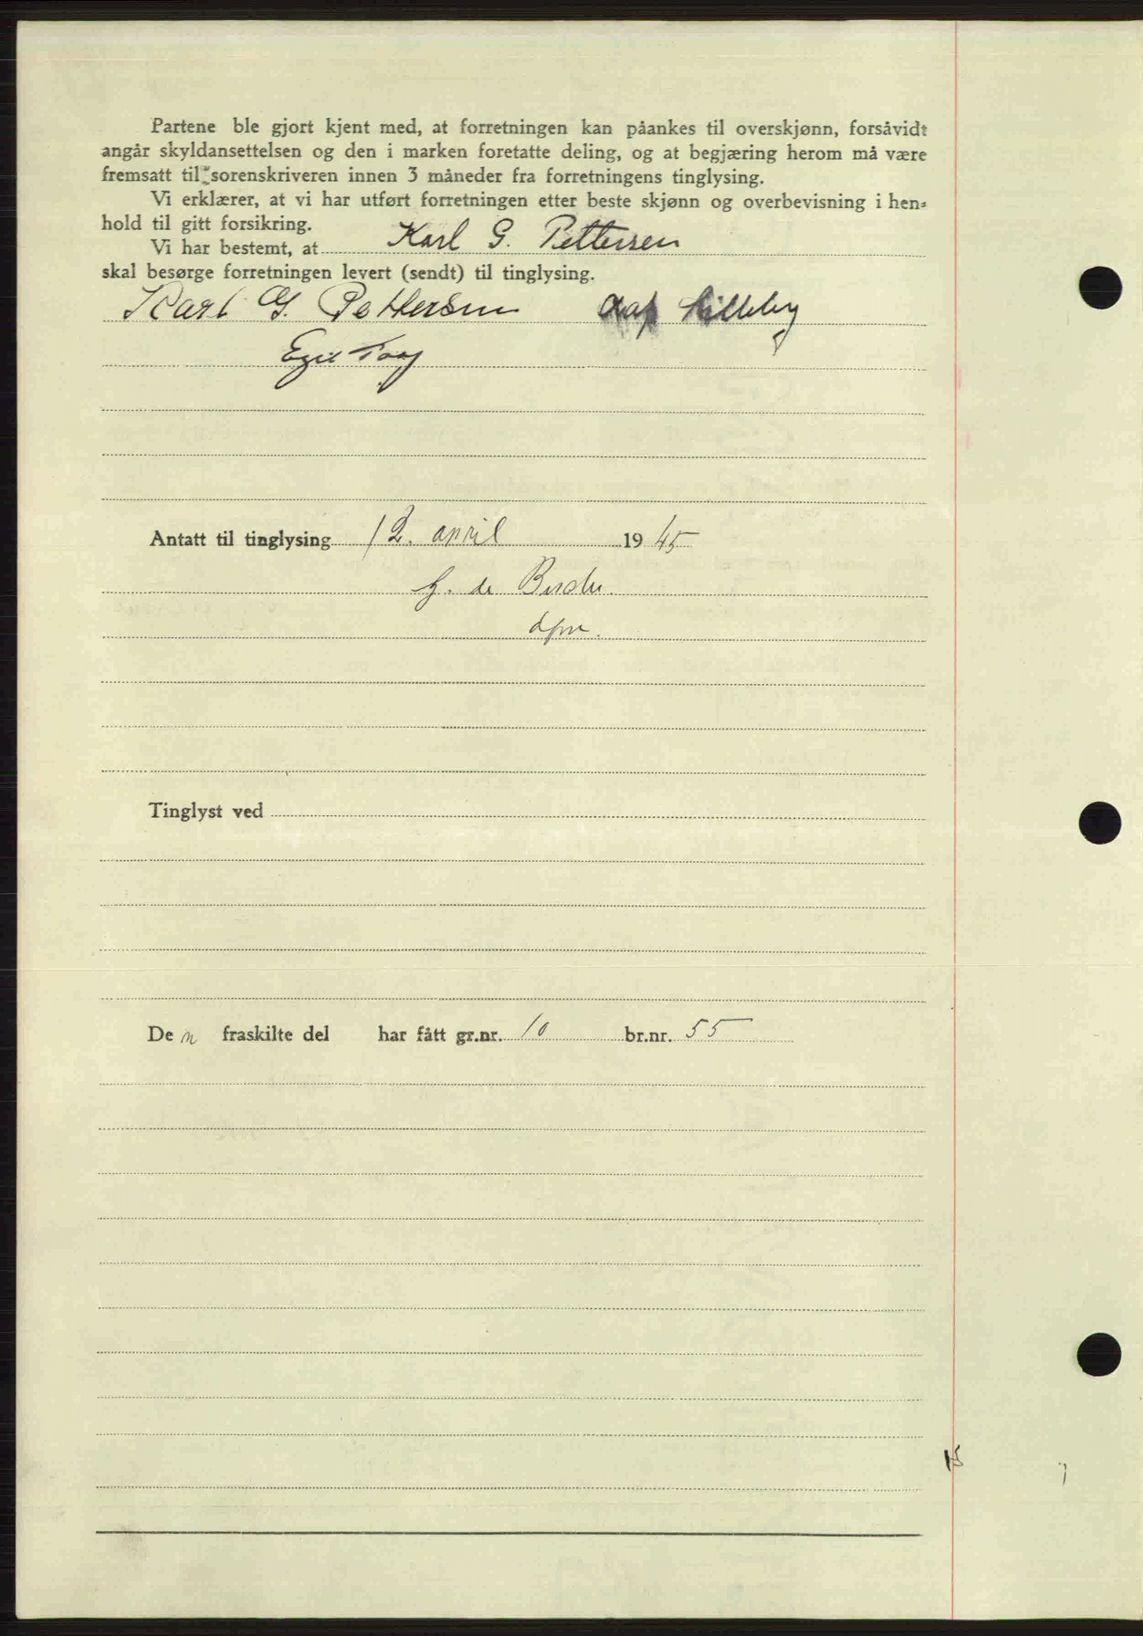 Partene ble gjort kjent med, at forretningen kan påankes til overskjønn, forsåvidt
angår skyldansettelsen og den i marken foretatte deling, og at begjæring herom må være
fremsatt til sorenskriveren innen 3 måneder fra forretningens tinglysing.
Vi erklærer, at vi har utført forretningen etter beste skjønn og overbevisning i hen-
hold til gitt forsikring.
Vi har bestemt, at Karl G. Pettersen
skal besørge forretningen levert (sendt) til tinglysing.
Karl G. Pettersen
Egil
Antatt til tinglysing 12. april 1945
de
Tinglyst ved
Den fraskilte del har fått gr.nr. 10 br.nr. 55
15